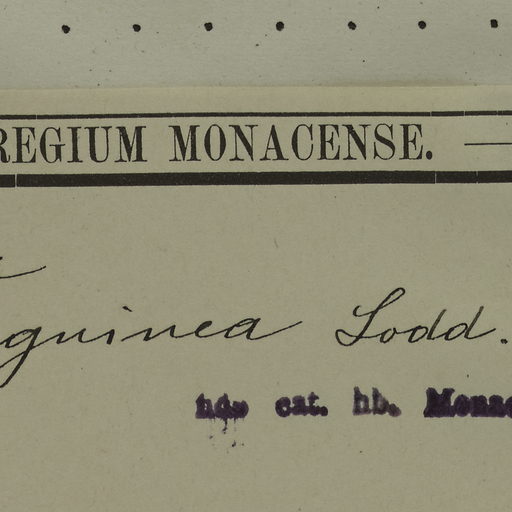 REGIUM MONACENSE.
guinea Lodd.
cat. hb. Monac